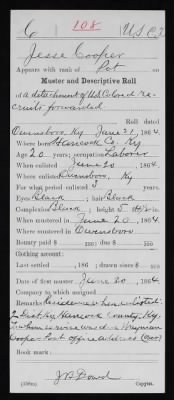 C 108 U.S.C.T.
Jesse Cooper
Appears with rank of Pvt on
Muster and Descriptive Roll
of a detachment of U.S. Colored re-
cruits forwarded
Roll dated
Owensboro, Ky June 21, 1864
Where born Hancock Co, Ky
Age 20 years; occupation Laborer
When enlisted June 20, 1864
Where enlisted Owensboro, Ky
For what period enlisted 3 years.
Eyes Black; hair Black
Complexion Black; height 5 ft. in.
When mustered in June 20, 1864
Where mustered in Owensboro
Bounty paid $ 100; due $ 100
Clothing account:
Last settled , 186 ; drawn since $ 100
Date of first muster June 20, 1864
Company to which assigned
Remarks: Residence when enlisted
Hancock County, Ky.
whom service owed
Cooper Post office address (Over)
Book mark:
(336m) Copyist.